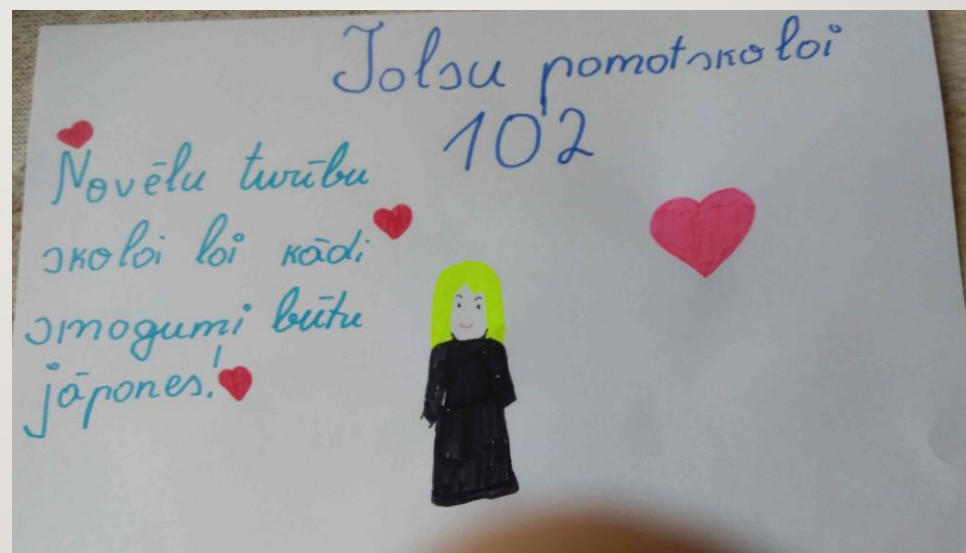 Talsu pamatskolai
102
Novēlu turību
skolai lai kādi
smagumi būtu
jāpanes!